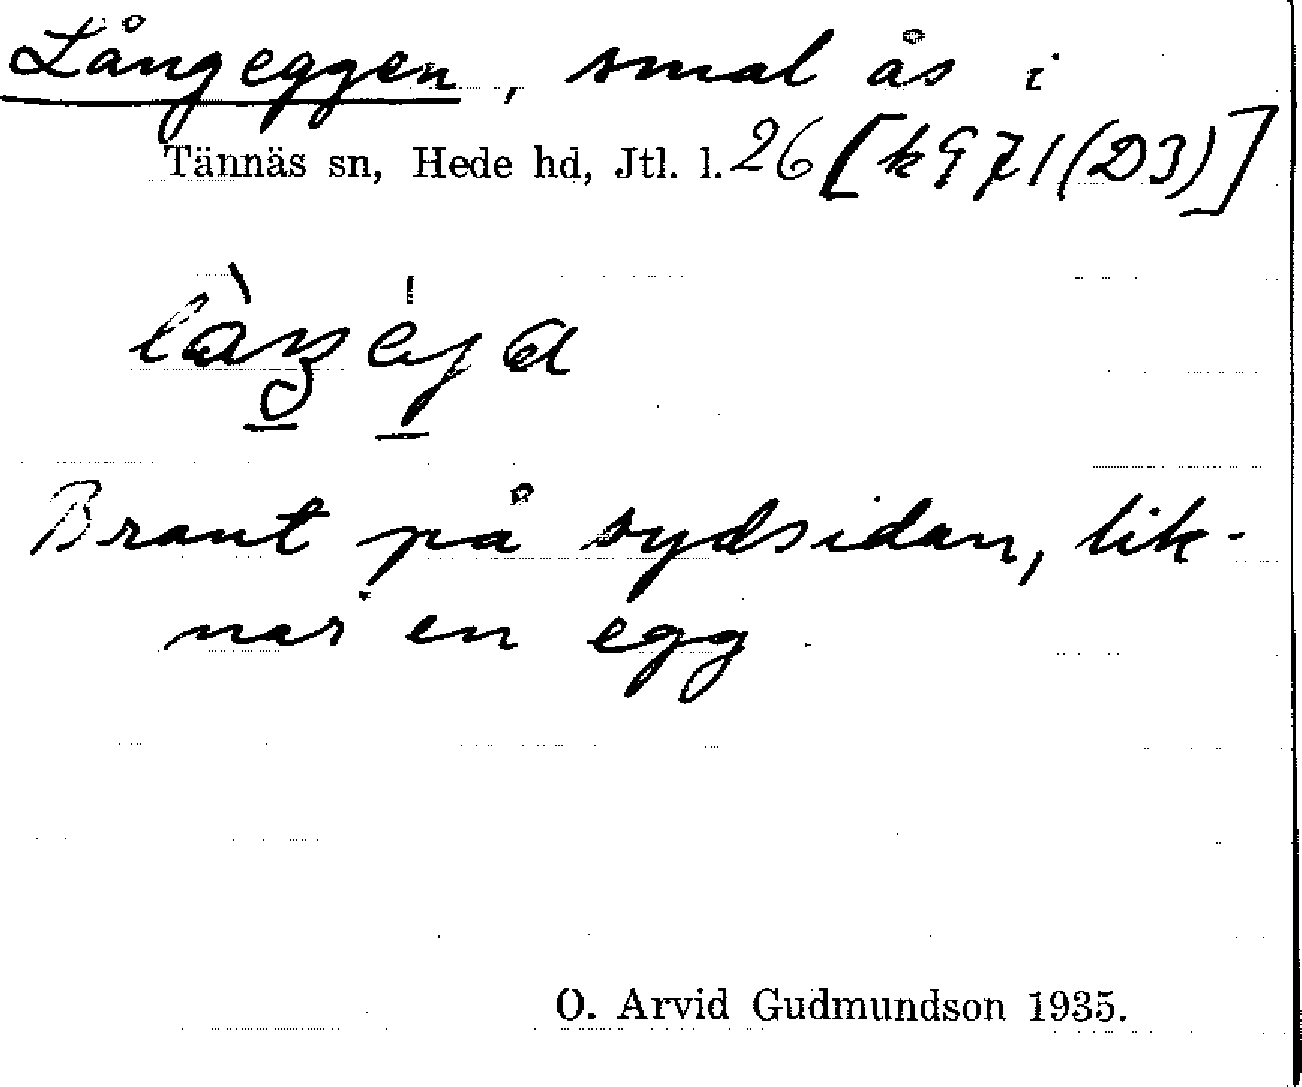 Långeggen, smal ås i
Tännäs sn, Hede hd, Jtl. l. 26 [k971(D3)]
Brant på sydsidan, lik-
nar en egg.
O. Arvid Gudmundson 1935.